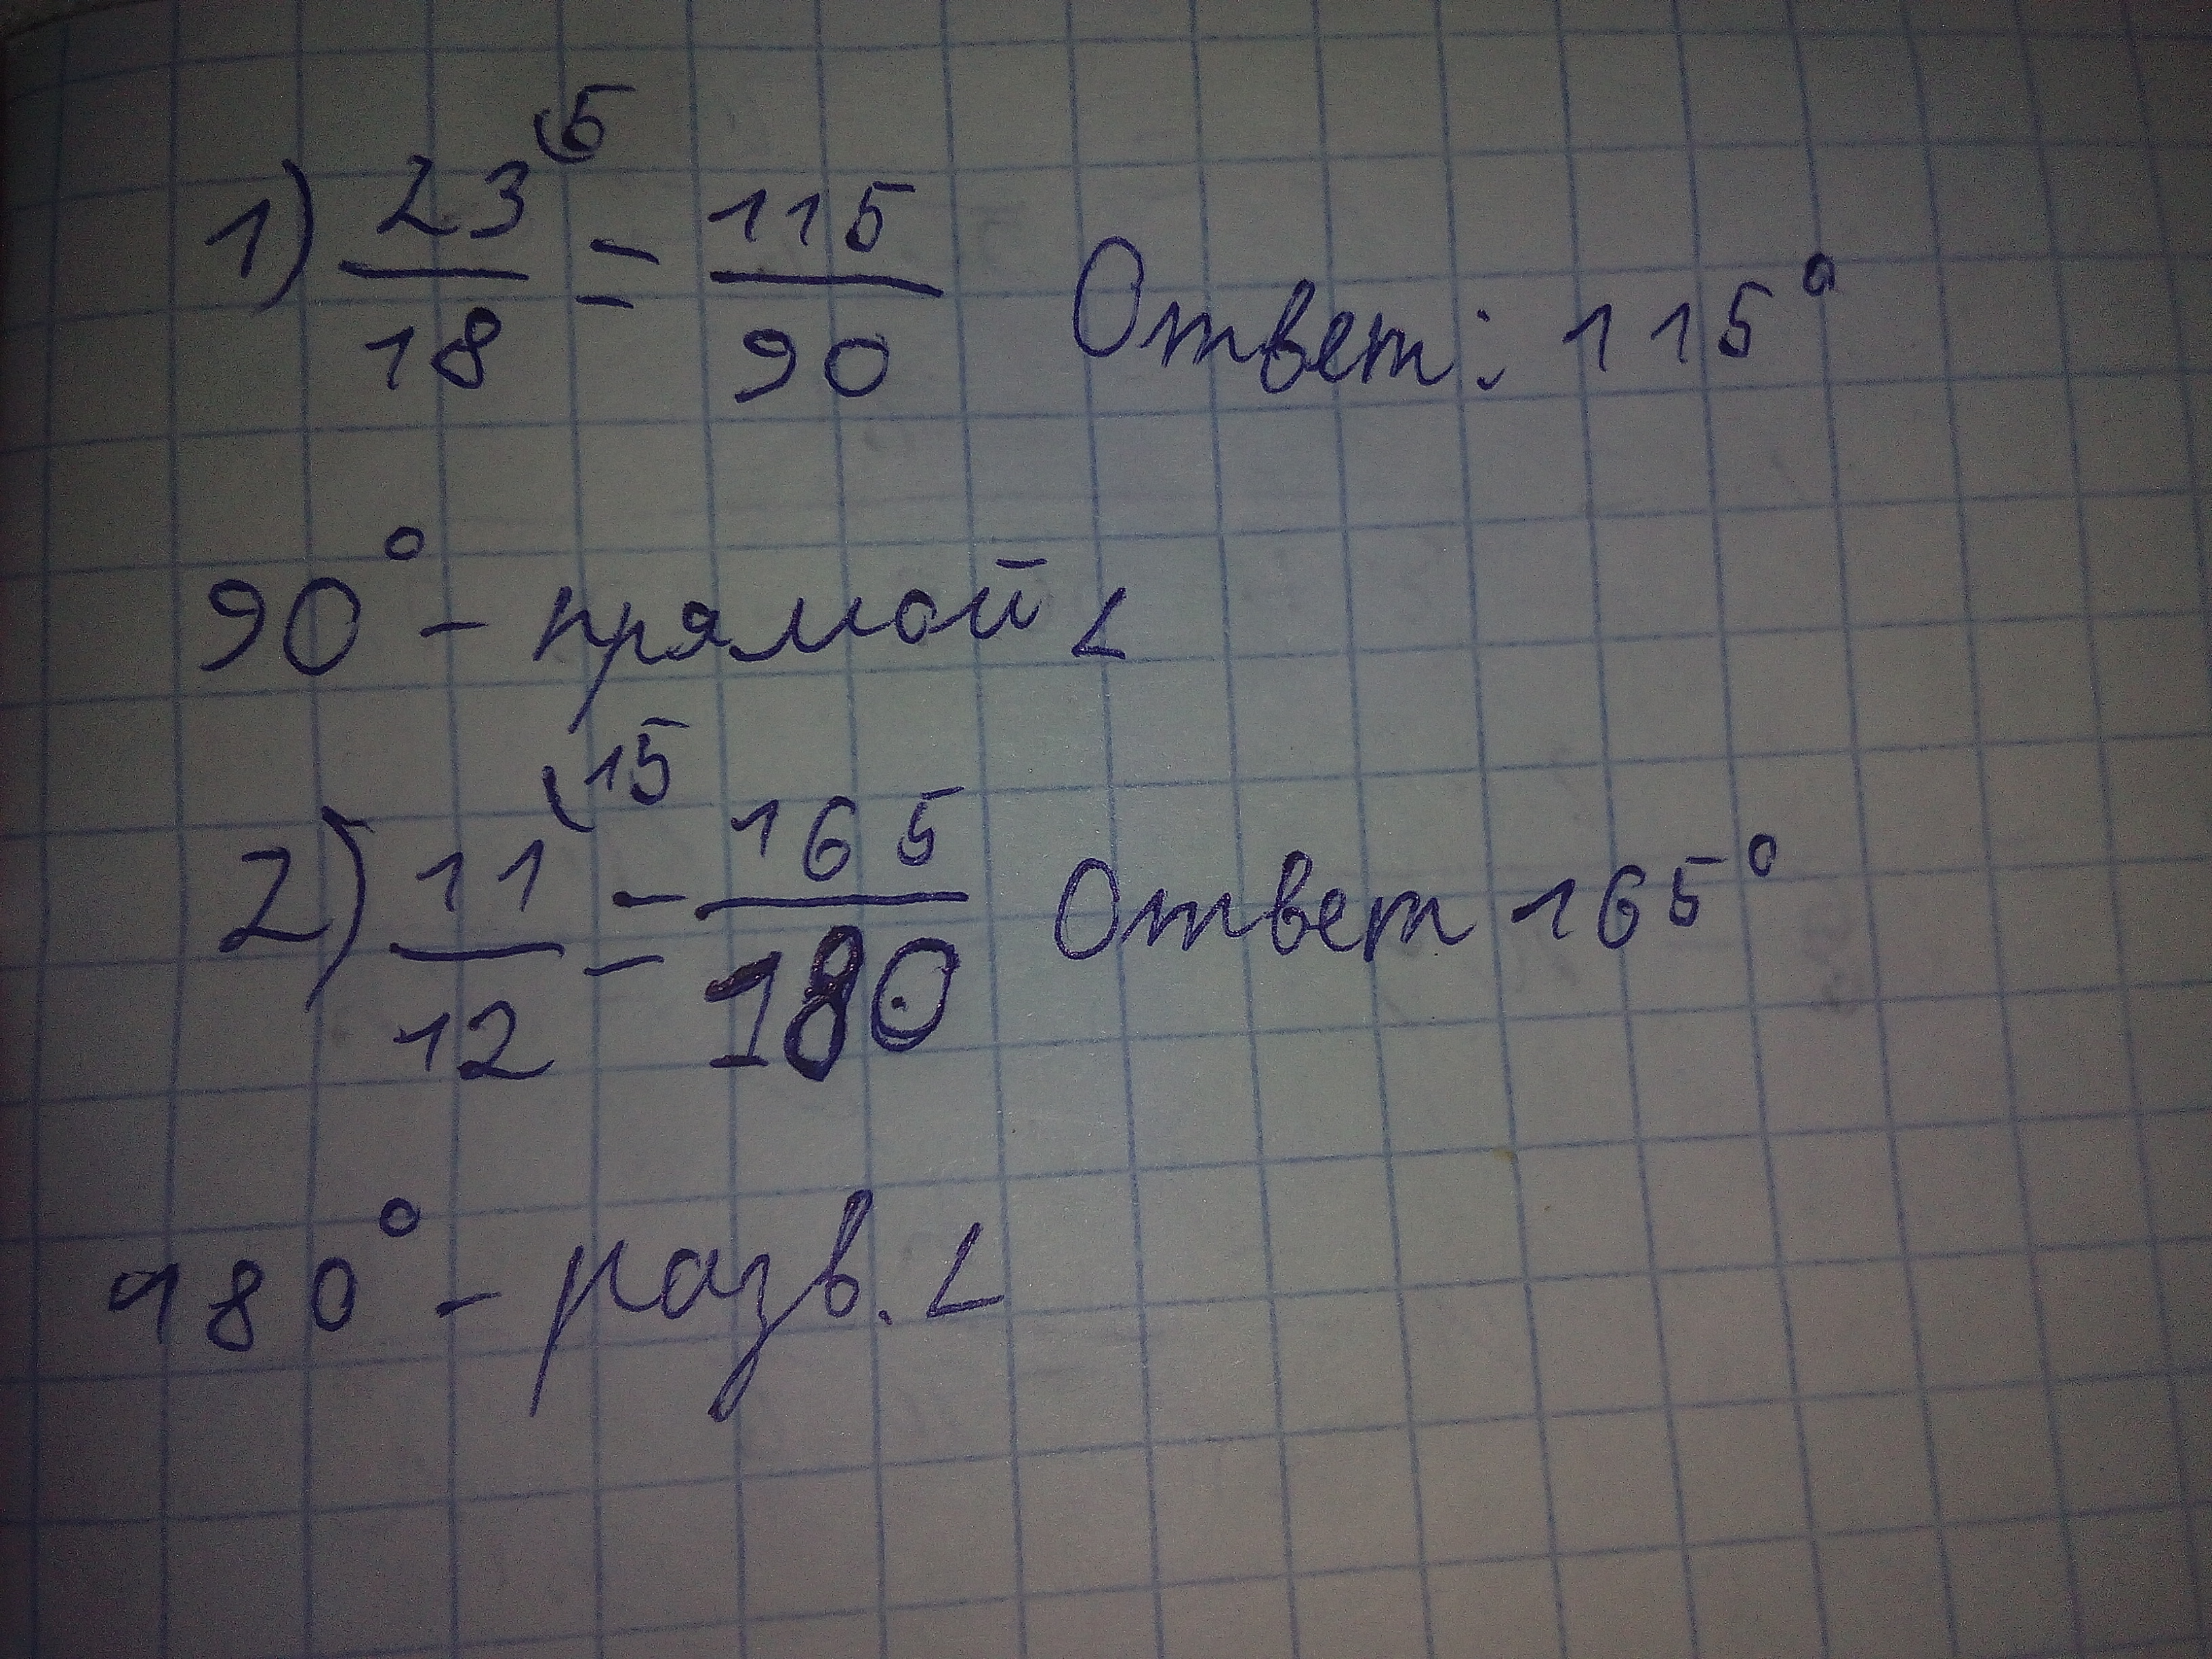 1) 23⁽⁵/18 = 115/90 Ответ: 115°
90° - прямой <
2) 11⁽¹⁵/12 = 165/180 Ответ 165°
180° - разв. <